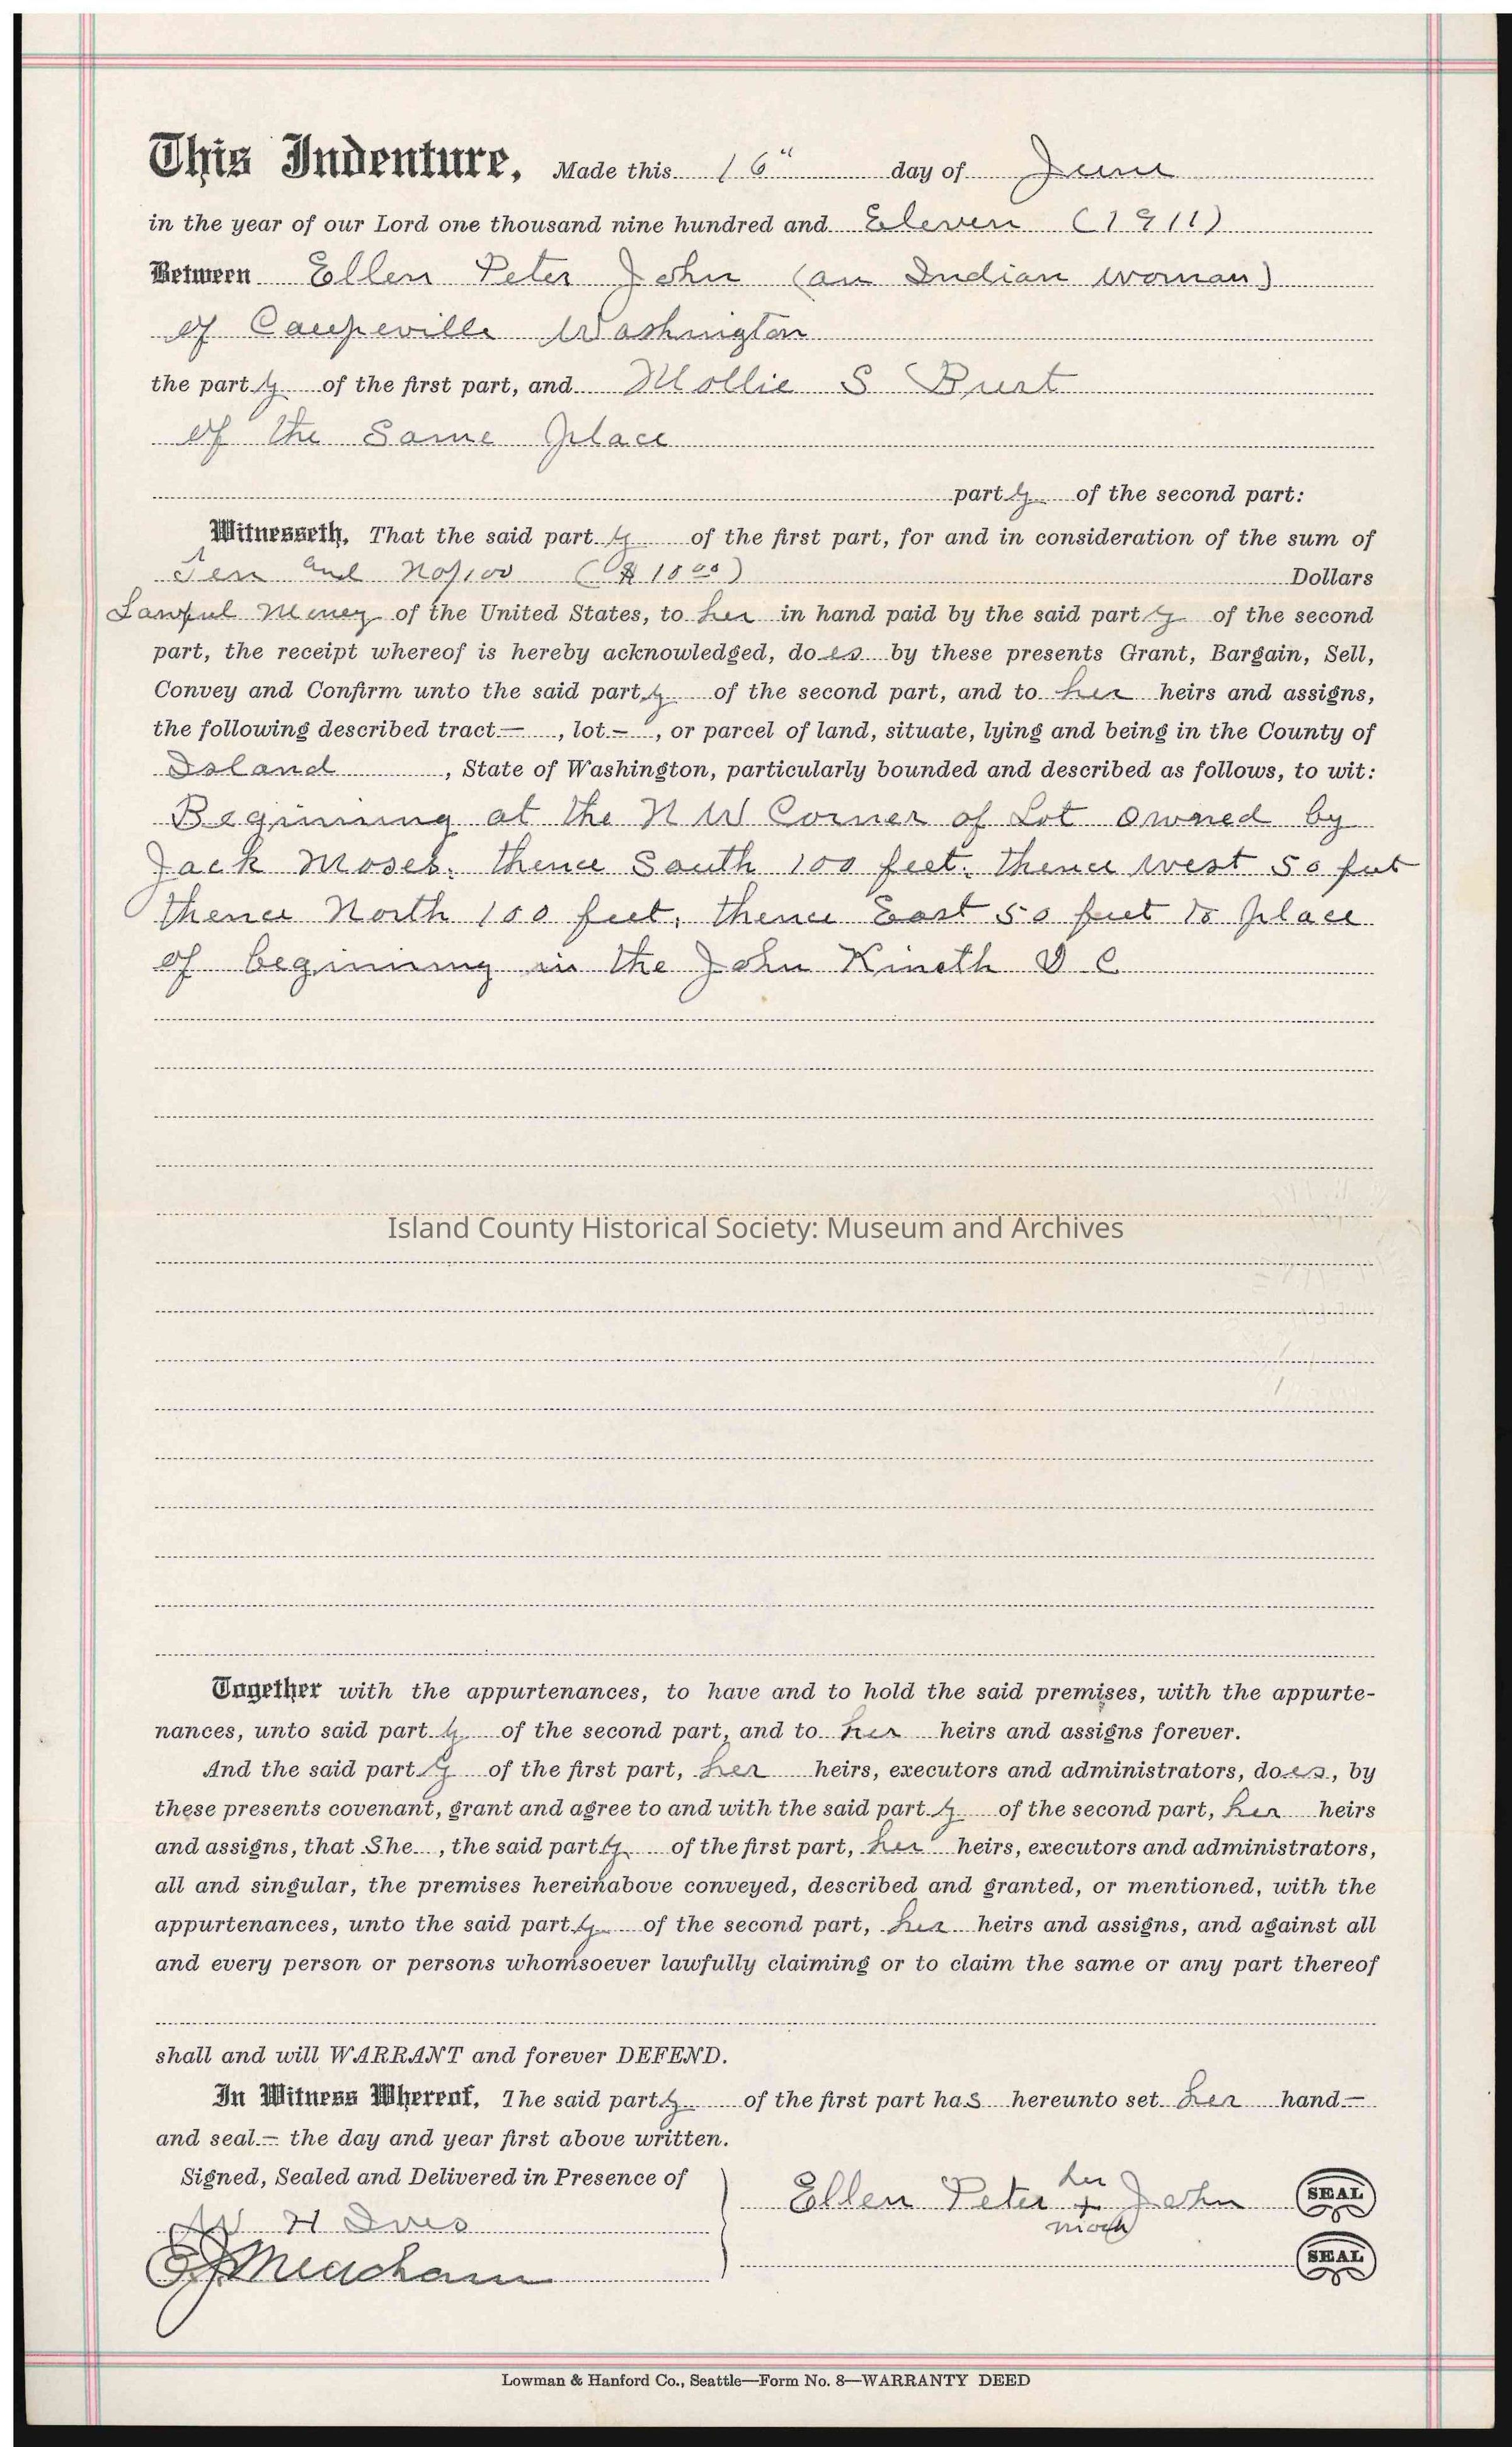 This Indenture, Made this 16" day of June
in the year of our Lord one thousand nine hundred and Eleven (1911)
Between Ellen Peter John (an Indian woman)
of Coupeville Washington
the party of the first part, and Mollie S Burt
of the Same place
party of the second part:
Witnesseth, That the said party of the first part, for and in consideration of the sum of
Ten and No/100 ($10 00) Dollars
Lawful Money of the United States, to her in hand paid by the said party of the second
part, the receipt whereof is hereby acknowledged, does by these presents Grant, Bargain, Sell,
Convey and Confirm unto the said party of the second part, and to her heirs and assigns,
the following described tract —, lot —, or parcel of land, situate, lying and being in the County of
Island, State of Washington, particularly bounded and described as follows, to wit:
Beginning at the N W Corner of Lot owned by
Jack Moses. thence South 100 feet. thence west 50 feet
thence North 100 feet, thence East 50 feet to place
of beginning in the John Kineth D C
Island County Historical Society: Museum and Archives
Together with the appurtenances, to have and to hold the said premises, with the appurte-
nances, unto said party of the second part, and to her heirs and assigns forever.
And the said party of the first part, her heirs, executors and administrators, does, by
these presents covenant, grant and agree to and with the said party of the second part, her heirs
and assigns, that She, the said party of the first part, her heirs, executors and administrators,
all and singular, the premises hereinabove conveyed, described and granted, or mentioned, with the
appurtenances, unto the said party of the second part, her heirs and assigns, and against all
and every person or persons whomsoever lawfully claiming or to claim the same or any part thereof
shall and will WARRANT and forever DEFEND.
In Witness Whereof, The said party of the first part has hereunto set her hand —
and seal — the day and year first above written.
Signed, Sealed and Delivered in Presence of
her
Ellen Peter + John SEAL
mark
W H Ives
E J Meacham
SEAL
Lowman & Hanford Co., Seattle—Form No. 8—WARRANTY DEED